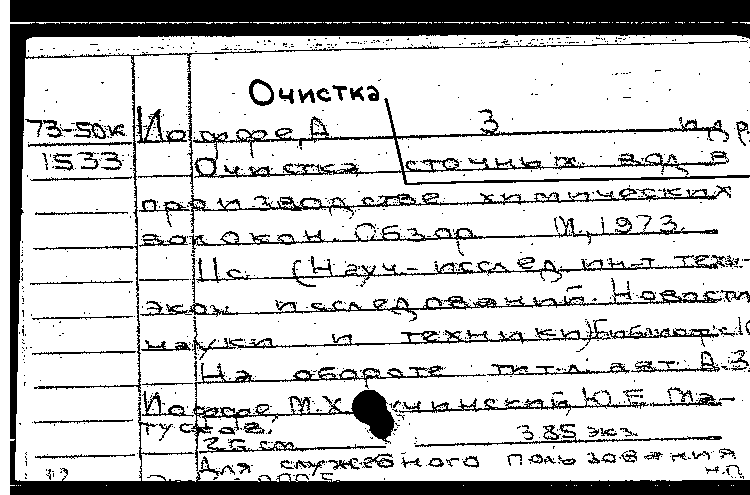 Очистка
73-50к Иоффе, А З и др
1533 Очистка сточных вод в
производстве химических
волокон. Обзор М., 1973.
11с. (Науч.-исслед. ин-т техн-
экон исследований. Новости
науки и техники) Библиогр.:
На обороте тит.л. авт: А.З.
Иоффе, М.Х Ю.Е. Ма-
тусков.
26 см 385 экз
Для служебного пользования
н.п.